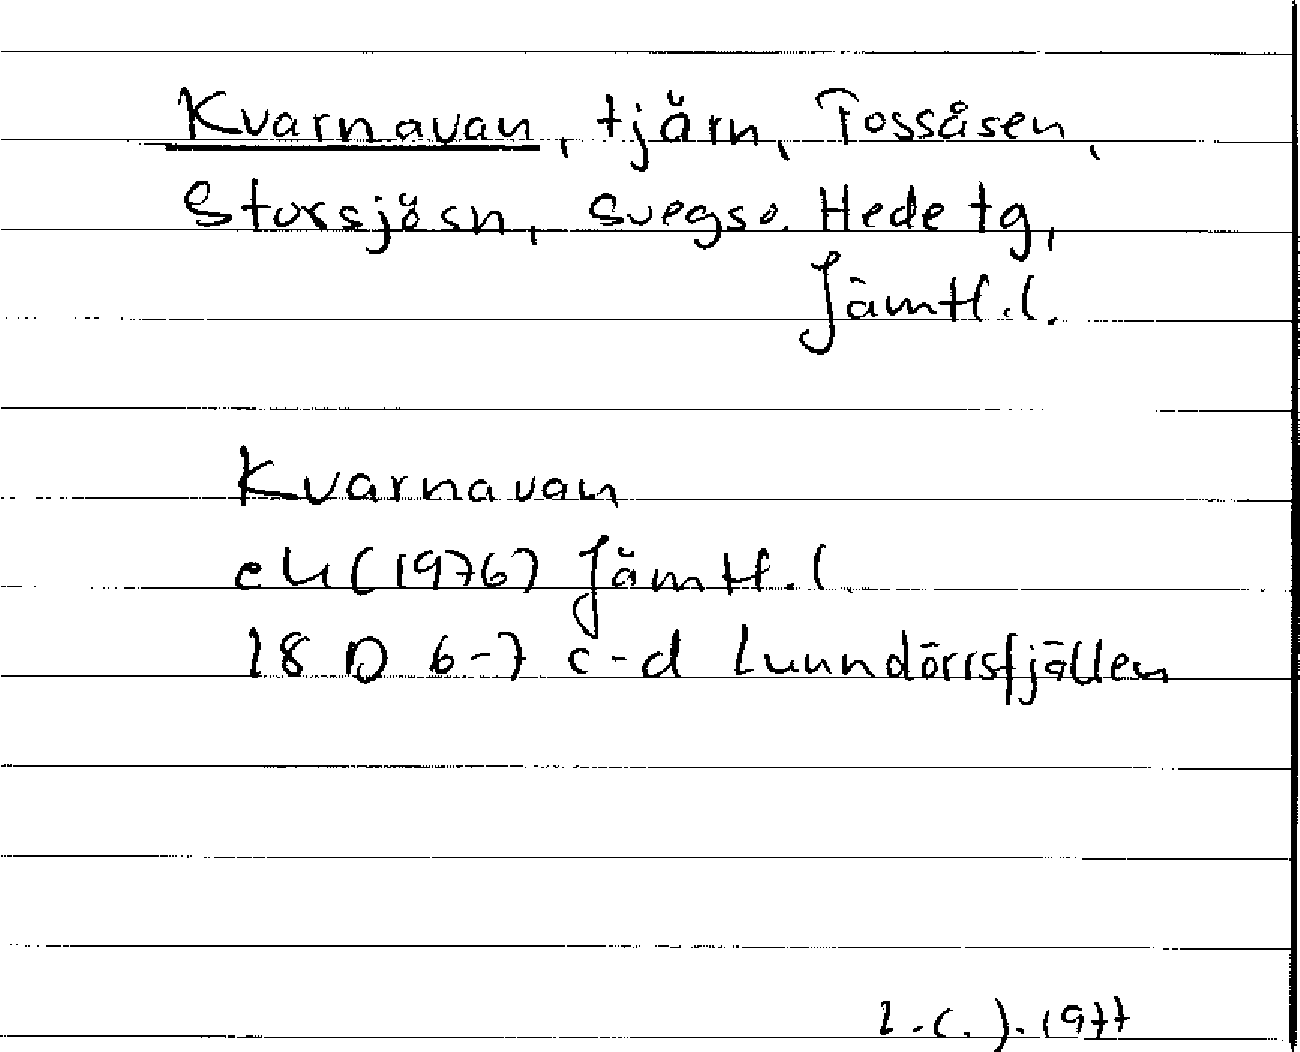 Kvarnavan, tjärn, Tossåsen,
Storsjösn, Svegs o. Hede tg,
Jämtl.l.
Kvarnavan
ek (1976) Jämtl.l
18 D 6-7 c-d Lunndörrsfjällen
1977